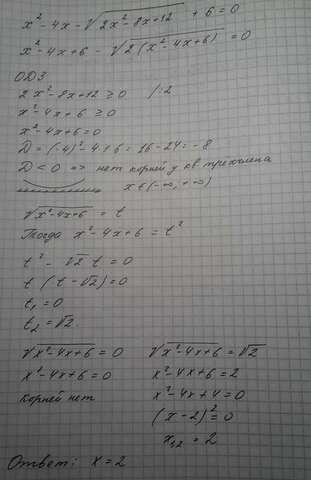 x² - 4x - √(2x² - 8x + 12) + 6 = 0
x² - 4x + 6 - √(2(x² - 4x + 6)) = 0
ОДЗ
2x² - 8x + 12 ≥ 0 /:2
x² - 4x + 6 ≥ 0
x² - 4x + 6 = 0
D = (-4)² - 4·1·6 = 16 - 24 = -8
D < 0 => нет корней у кв трехчлена
x ∈ (-∞, +∞)
√(x² - 4x + 6) = t
Тогда x² - 4x + 6 = t²
t² - √2 t = 0
t (t - √2) = 0
t₁ = 0
t₂ = √2
√(x² - 4x + 6) = 0
x² - 4x + 6 = 0
Корней нет
√(x² - 4x + 6) = √2
x² - 4x + 6 = 2
x² - 4x + 4 = 0
(x - 2)² = 0
x₁,₂ = 2
Ответ: x = 2